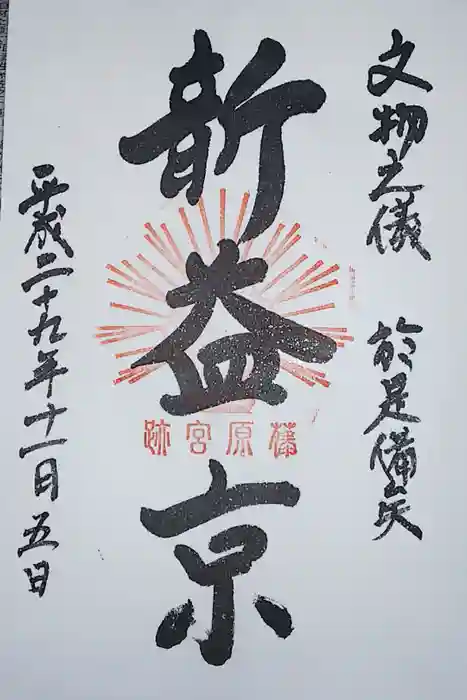 文物之儀 於是備矣
新益京
藤原宮跡
平成二十九年十一月五日